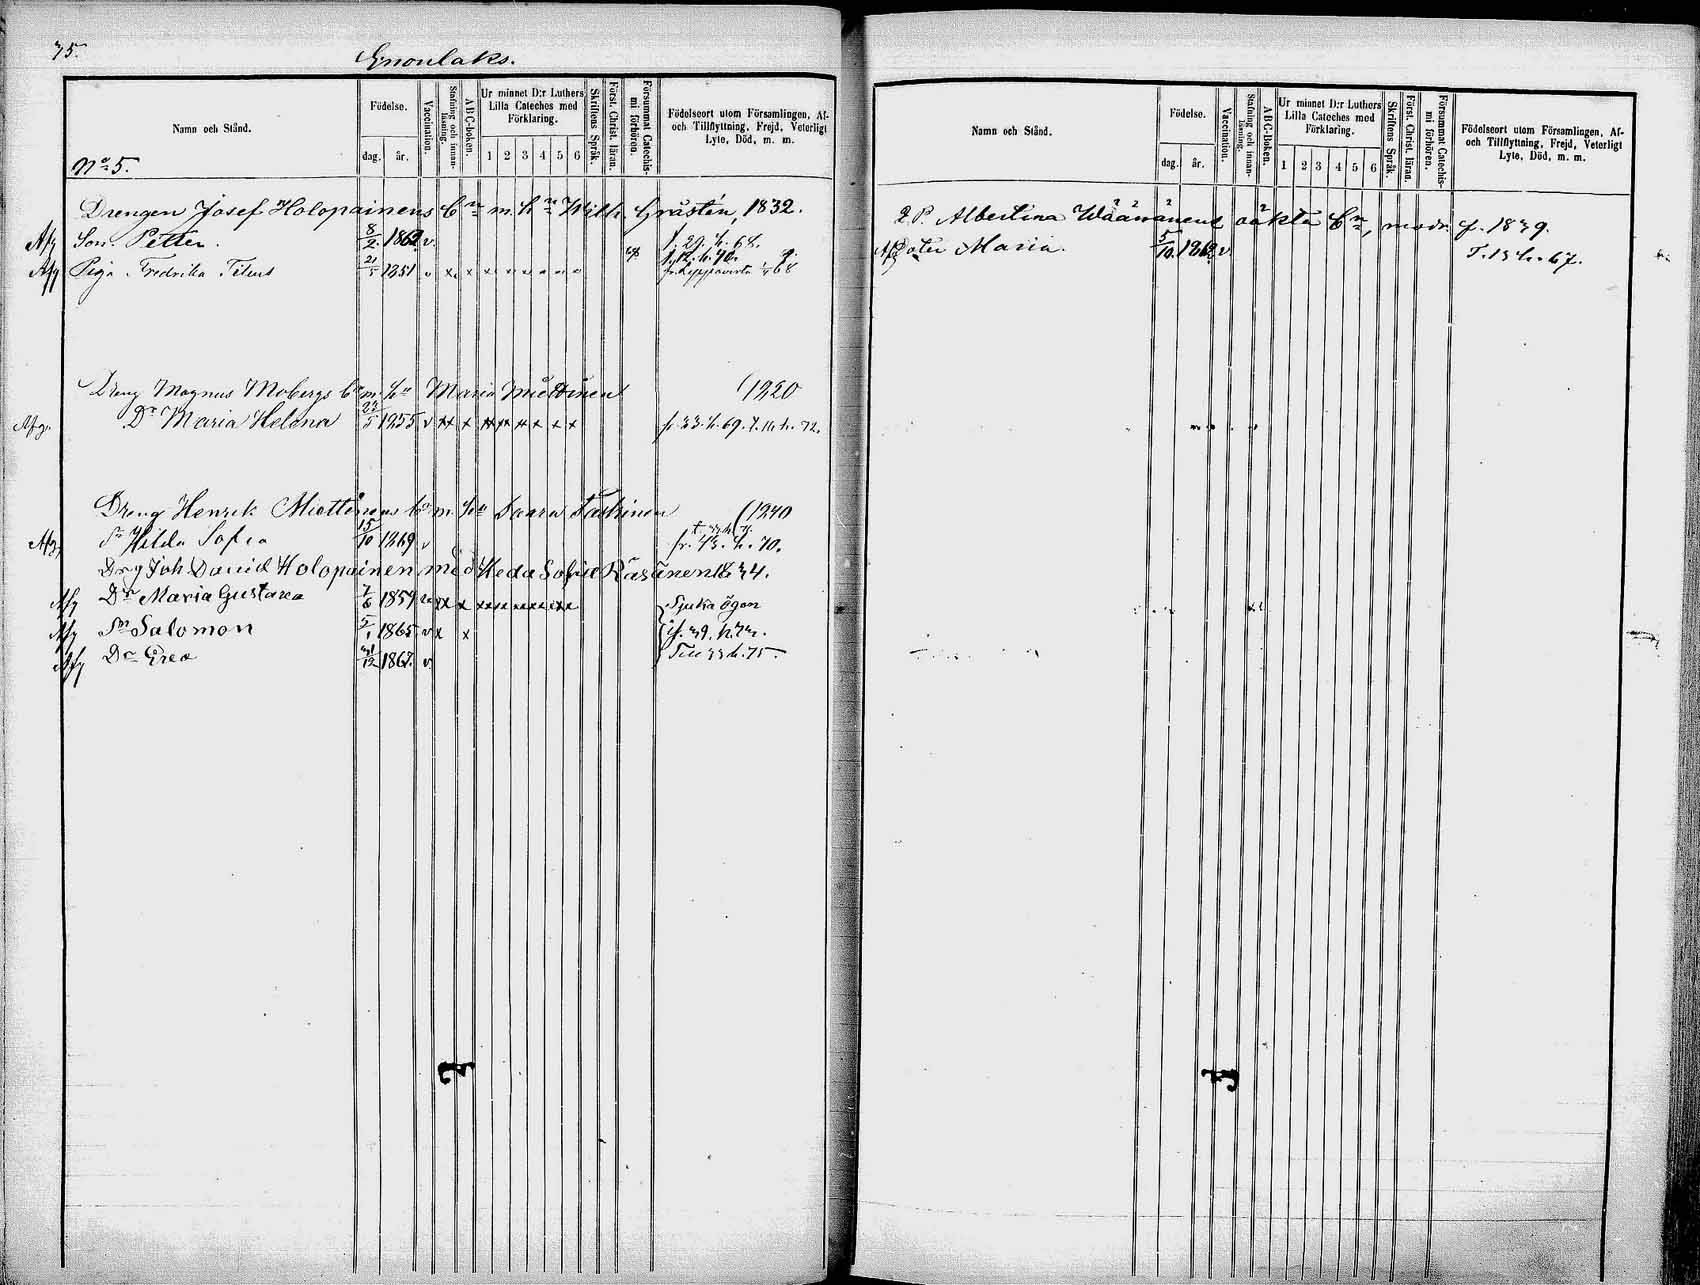 75.
Enonlaks.
Namn och Stånd.
Födelse.
dag.
år.
Vaccination.
Stafning och innan-läsning.
ABC-boken.
Ur minnet D:r Luthers Lilla Cateches med Förklaring.
1 2 3 4 5 6
Skriftens Språk.
Först. Christ. läran.
Försummat Catechis-mi förhören.
Födelseort utom Församlingen, Af- och Tillflyttning, Frejd, Veterligt Lyte, Död, m. m.
No 5.
Drengen Josef Holopainens Bn m. hn Wilh. Gråsten, 1832.
Afg Son Petter. 8/2 1862 v. f. 29. h. 68.
Afg Piga Fredrika 21/5 1851 v x x x x x x x x fr. Leppävirta 68
Dreng Magnus Mobergs bn m. hu Maria Miettinen (1820
Afg. Dr Maria Helena 5 1855 v xx x xx xx x x x x fr. 33. h. 69. T. 16 h. 72.
Dreng Henrik Miettinens bn m. hu Saara Taskinen (1840
Afg. Hilda Sofia 15/10 1869 v fr. 43. h. 70.
Drg Joh. David Holopainen med Heda Sofie Räsänen 1834.
Afg Dr Maria Gustava 7/6 1859 v xx x xx xx xx xx Sjuka ögon
Afg Sn Salomon 5/1 1865 v x x if. 39. h. 72.
Afg Dr Greta 1867. v Till 33 h. 75.
Namn och Stånd.
Födelse.
dag.
år.
Vaccination.
Stafning och innan-läsning.
ABC-Boken.
Ur minnet D:r Luthers Lilla Cateches med Förklaring.
1 2 3 4 5 6
Skriftens Språk.
Först. Christ. läran.
Försummat Catechis-mi förhören.
Födelseort utom Församlingen, Af- och Tillflyttning, Frejd, Veterligt Lyte, Död, m. m.
Q. P. Albertina Wäänänens oäkta Bn, modr. f. 1839.
Afg Doter Maria. 5/10 1862 v. T. 13 h. 67.